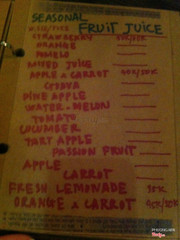 SEASONAL
FRUIT JUICE
STRAWBERRY
ORANGE
POMELO
MIXED JUICE
APPLE & CARROT
GUAVA
PINE APPLE
WATER-MELON
TOMATO
CUCUMBER
TART APPLE
PASSION FRUIT
APPLE
CARROT
FRESH LEMONADE
ORANGE & CARROT